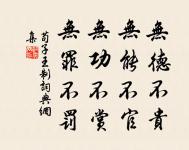 無德不貴
無能不官
無功不賞
無罪不罰
荀子王制詞典網
集